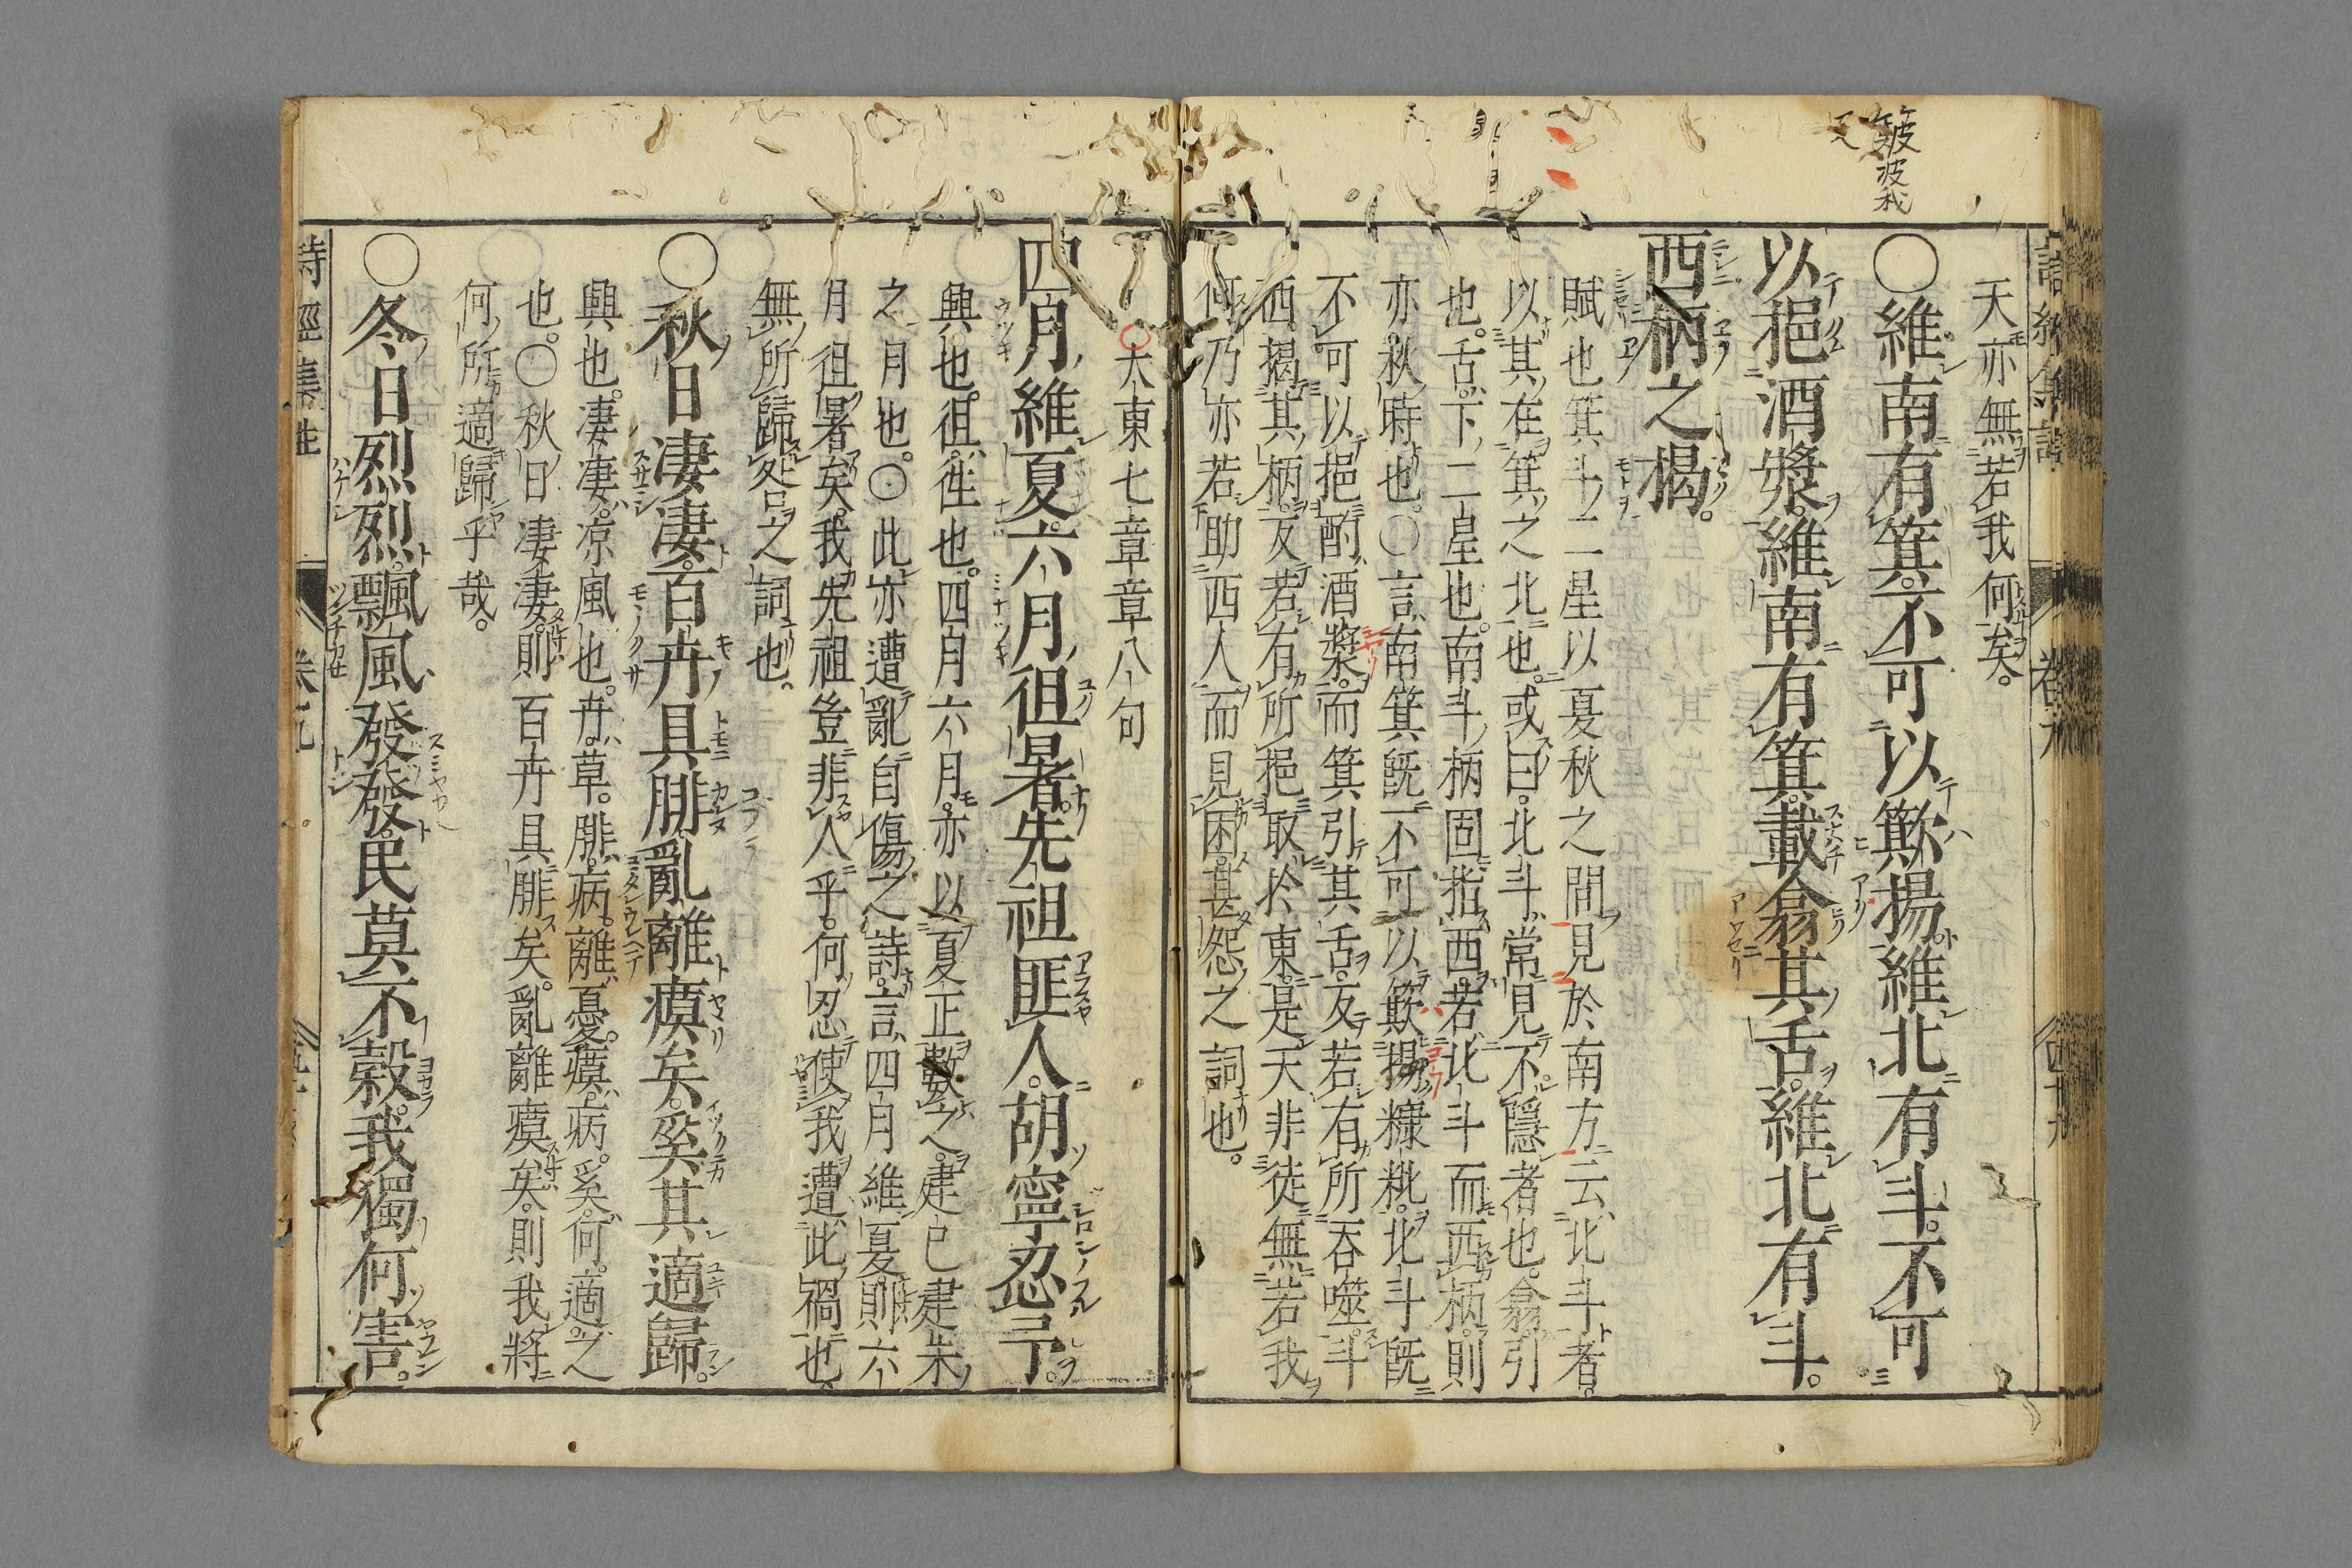 簸波我
天亦無若我何矣。
〇維南有箕。不可以簸揚。維北有斗。不可
以挹酒漿。維南有箕。載翕其舌。維北有斗。
西柄之揭。
賦也箕斗二星以夏秋之間見於南方云北斗者。
以其在箕之北也。或曰。北斗常見不隱者也。翕引
也。舌下二星也。南斗柄固指西。若北斗而西柄。則
亦秋時也。〇言南箕旣不可以簸揚糠粃。北斗旣
不可以挹酌酒漿。而箕引其舌。反若有所吞噬。斗
西揭其柄。反若有所挹取於東。是天非徒無若我
何。乃亦若助西人而見困。甚怨之詞也。
大東七章章八句
四月維夏。六月徂暑。先祖匪人。胡寧忍予。
興也。徂。徃也。四月六月。亦以夏正數之。建巳建未
之月也。〇此亦遭亂自傷之詩。言四月維夏。則六
月徂暑矣。我先祖豈非人乎。何忍使我遭此禍也。
無所歸咎之詞也。
〇秋日凄凄。百卉具腓。亂離瘼矣。奚其適歸。
興也。凄凄。凉風也。卉。草。腓。病。離。憂。瘼。病。奚。何。適。之
也。〇秋日凄凄。則百卉具腓矣。亂離瘼矣。則我將
何所適歸乎哉。
〇冬日烈烈。飄風發發。民莫不穀。我獨何害。
詩經集註